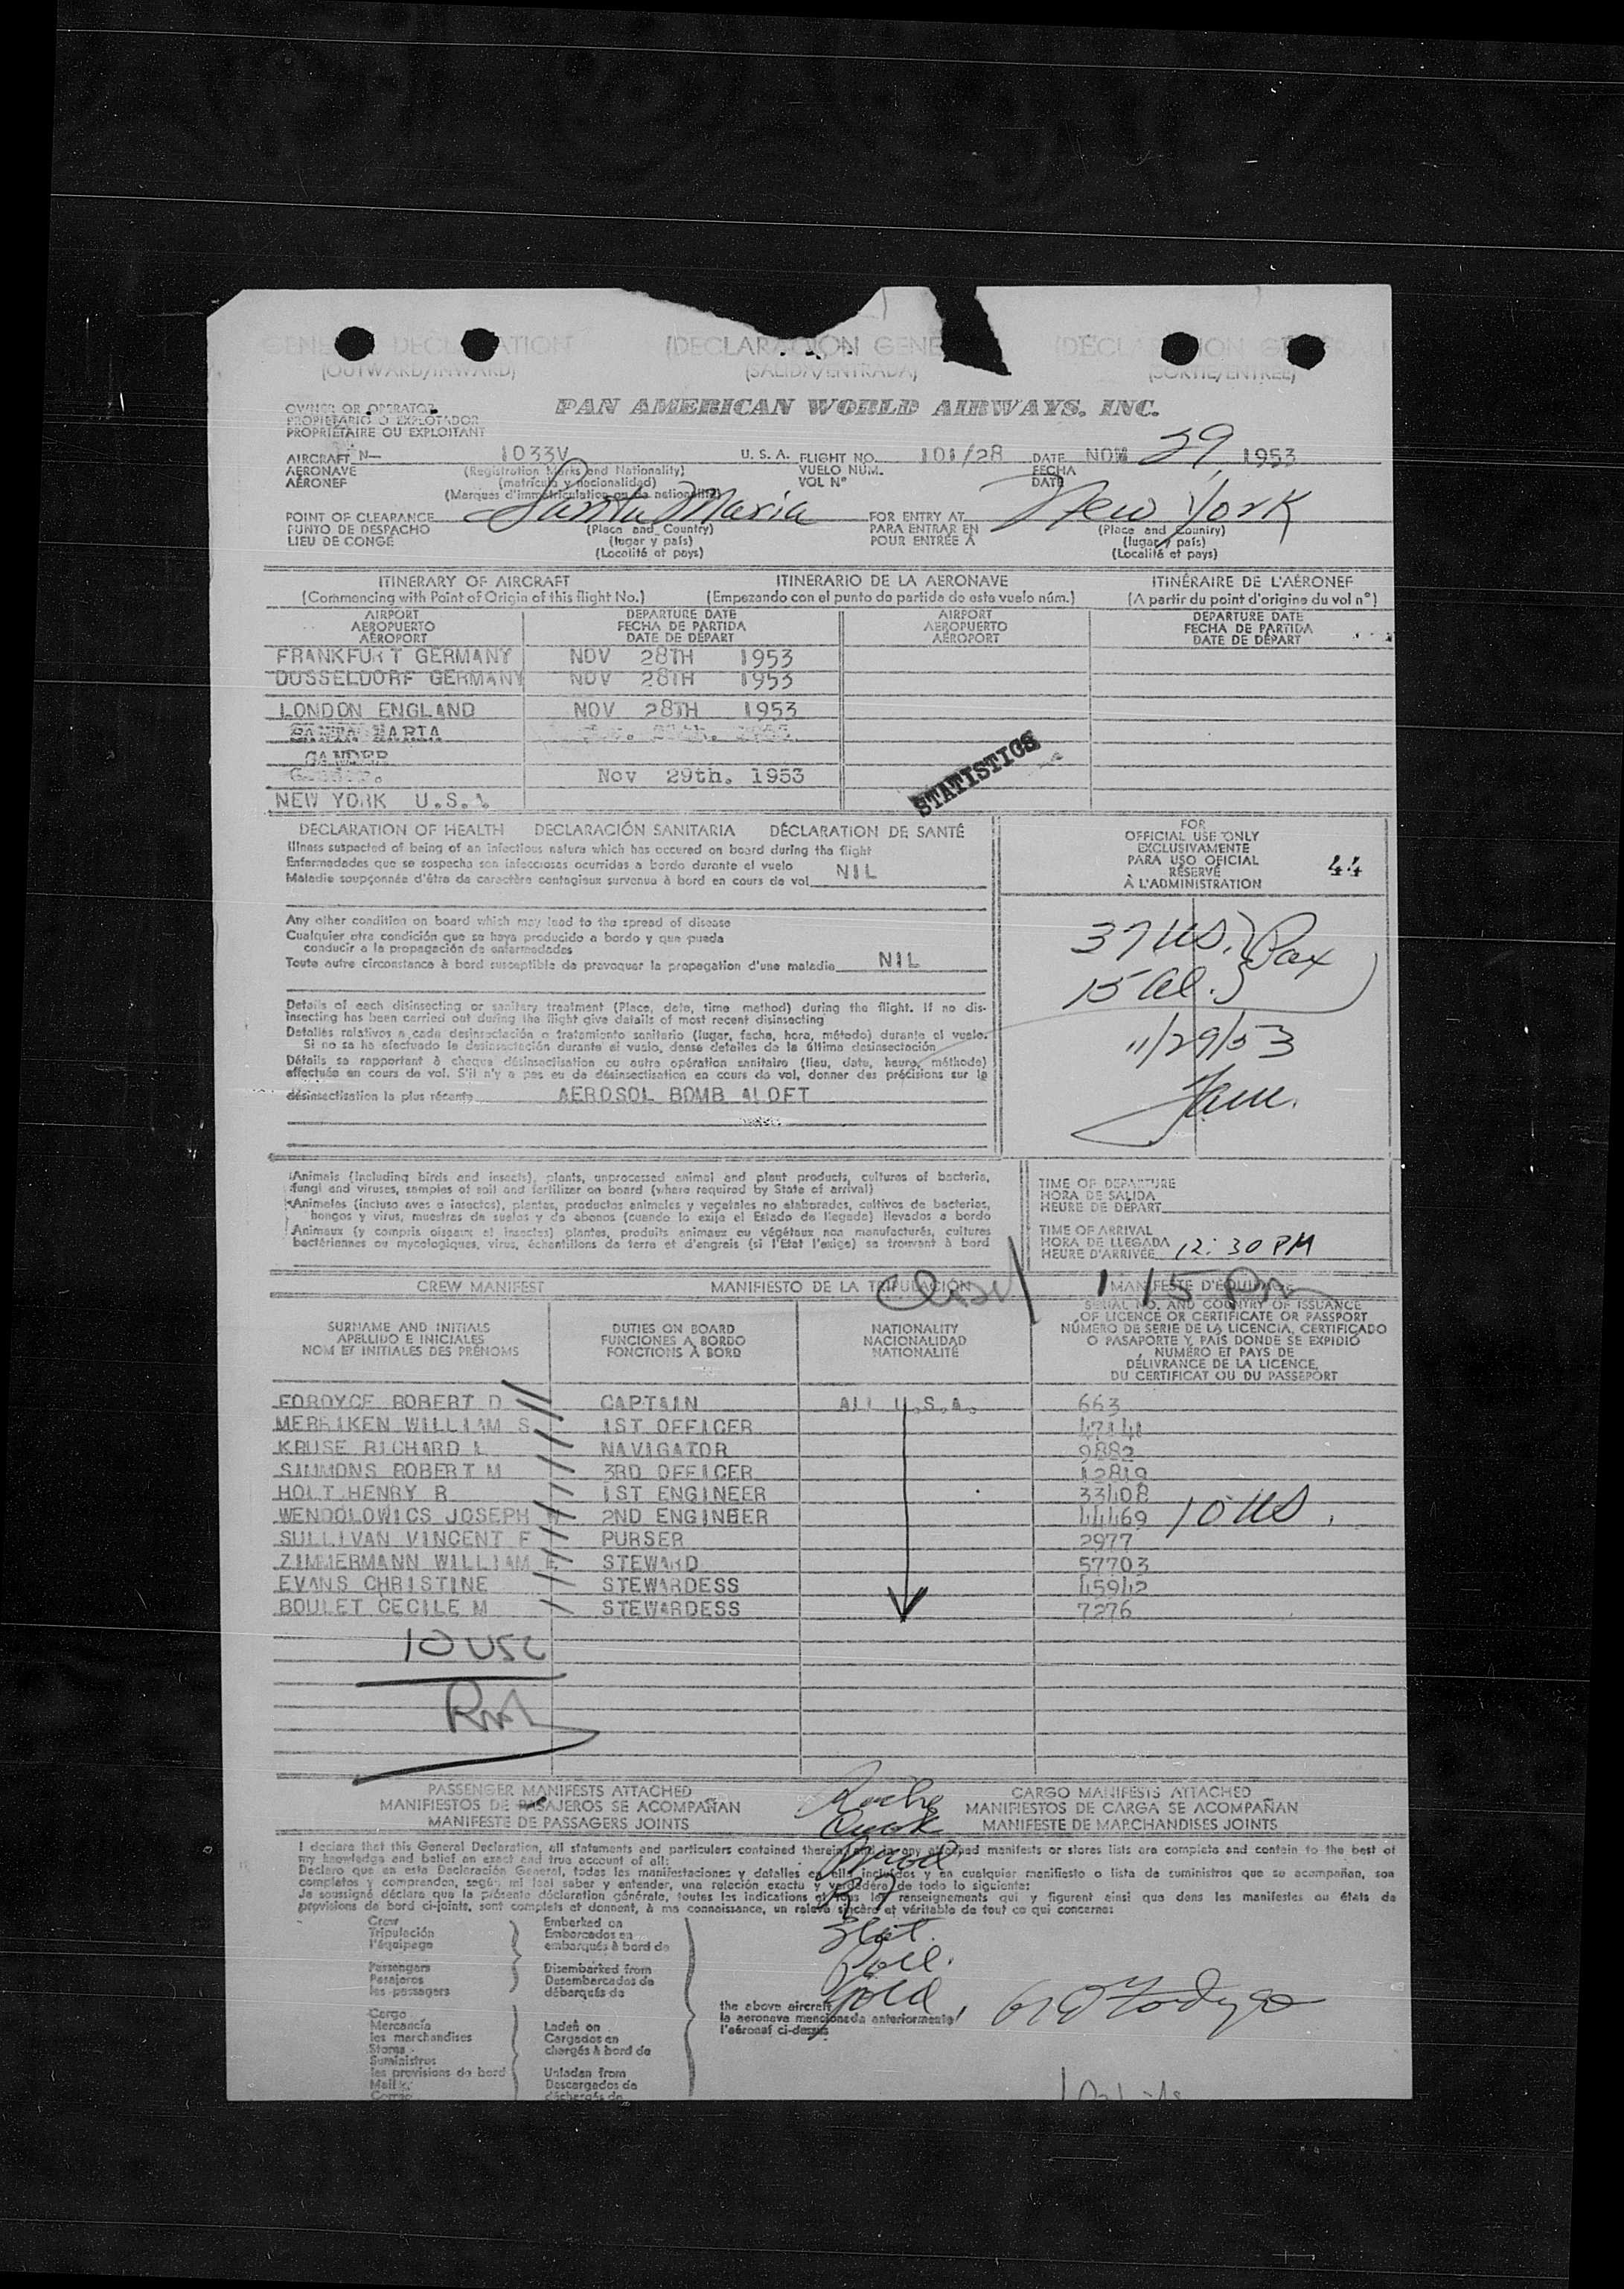 GENERAL DECLARATION (DECLARACION GENERAL) (DÉCLARATION GÉNÉRALE)
(OUTWARD/INWARD) (SALIDA/ENTRADA) (SORTIE/ENTRÉE)
OWNER OR OPERATOR
PROPIETARIO O EXPLOTADOR
PROPRIÉTAIRE OU EXPLOITANT
PAN AMERICAN WORLD AIRWAYS, INC.
AIRCRAFT N— 1033V U. S. A. FLIGHT NO. 101/28 DATE NOV 29, 1953
AERONAVE (Registration Marks and Nationality) VUELO NÚM. FECHA
AÉRONEF (matrícula y nacionalidad) VOL N° DATE
(Marques d'immatriculation ou de nationalité)
POINT OF CLEARANCE Santa Maria FOR ENTRY AT New York
PUNTO DE DESPACHO (Place and Country) PARA ENTRAR EN (Place and Country)
LIEU DE CONGÉ (lugar y país) POUR ENTRÉE À (lugar y país)
(Localité et pays) (Localité et pays)
ITINERARY OF AIRCRAFT ITINERARIO DE LA AERONAVE ITINÉRAIRE DE L'AÉRONEF
(Commencing with Point of Origin of this flight No.) (Empezando con el punto de partida de este vuelo núm.) (A partir du point d'origine du vol n°)
AIRPORT DEPARTURE DATE AIRPORT DEPARTURE DATE
AEROPUERTO FECHA DE PARTIDA AEROPUERTO FECHA DE PARTIDA
AÉROPORT DATE DE DÉPART AÉROPORT DATE DE DÉPART
FRANKFURT GERMANY NOV 28TH 1953
DUSSELDORF GERMANY NOV 28TH 1953
LONDON ENGLAND NOV 28TH 1953
SANTA MARIA
GANDER
Nov 29th. 1953
NEW YORK U.S.A.
STATISTICS
DECLARATION OF HEALTH DECLARACIÓN SANITARIA DÉCLARATION DE SANTÉ
Illness suspected of being of an infectious nature which has occured on board during the flight
Enfermedades que se sospecha son infecciosas ocurridas a bordo durante el vuelo
Maladie soupçonnée d'être de caractère contagieux survenue à bord en cours de vol NIL
FOR
OFFICIAL USE ONLY
EXCLUSIVAMENTE
PARA USO OFICIAL
RÉSERVÉ
À L'ADMINISTRATION
44
Any other condition on board which may lead to the spread of disease
Cualquier otra condición que se haya producido a bordo y que pueda
conducir a la propagación de enfermedades
Toute autre circonstance à bord susceptible de provoquer la propagation d'une maladie NIL
37 US. } Pax
15 Al.
11/29/53
Details of each disinsecting or sanitary treatment (Place, date, time method) during the flight. If no dis-
insecting has been carried out during the flight give details of most recent disinsecting
Detalles relativos a cada desinsectación o tratamiento sanitario (lugar, fecha, hora, método) durante el vuelo.
Si no se ha efectuado la desinsectación durante el vuelo, dense detalles de la última desinsectación
Détails se rapportant à chaque désinsectisation ou autre opération sanitaire (lieu, date, heure, méthode)
effectuée en cours de vol. S'il n'y a pas eu de désinsectisation en cours de vol, donner des précisions sur la
désinsectisation la plus récente AEROSOL BOMB ALOFT
Animals (including birds and insects), plants, unprocessed animal and plant products, cultures of bacteria,
fungi and viruses, samples of soil and fertilizer on board (where required by State of arrival)
Animales (incluso aves e insectos), plantas, productos animales y vegetales no elaborados, cultivos de bacterias,
hongos y virus, muestras de suelos y de abonos (cuando lo exija el Estado de llegada) llevados a bordo
Animaux (y compris oiseaux et insectes) plantes, produits animaux ou végétaux non manufacturés, cultures
bactériennes ou mycologiques, virus, échantillons de terre et d'engrais (si l'Etat l'exige) se trouvant à bord
TIME OF DEPARTURE
HORA DE SALIDA
HEURE DE DÉPART
TIME OF ARRIVAL
HORA DE LLEGADA
HEURE D'ARRIVÉE 12:30 PM
1 15 Pm
CREW MANIFEST MANIFIESTO DE LA TRIPULACIÓN MANIFESTE D'ÉQUIPAGE
SURNAME AND INITIALS
APELLIDO E INICIALES
NOM ET INITIALES DES PRÉNOMS
DUTIES ON BOARD
FUNCIONES A BORDO
FONCTIONS À BORD
NATIONALITY
NACIONALIDAD
NATIONALITÉ
SERIAL NO. AND COUNTRY OF ISSUANCE
OF LICENCE OR CERTIFICATE OR PASSPORT
NÚMERO DE SERIE DE LA LICENCIA, CERTIFICADO
O PASAPORTE Y PAÍS DONDE SE EXPIDIÓ
NUMÉRO ET PAYS DE
DÉLIVRANCE DE LA LICENCE,
DU CERTIFICAT OU DU PASSEPORT
FORDYCE ROBERT D CAPTAIN ALL U.S.A. 663
MERRIKEN WILLIAM S 1ST OFFICER 47141
KRUSE RICHARD L NAVIGATOR 9882
SIMMONS ROBERT M 3RD OFFICER 12819
HOLT HENRY R 1ST ENGINEER 33408
WENDOLOWICS JOSEPH W 2ND ENGINEER 44469 10 US.
SULLIVAN VINCENT F PURSER 2977
ZIMMERMANN WILLIAM STEWARD 57703
EVANS CHRISTINE STEWARDESS 45942
BOULET CECILE M STEWARDESS 7276
10 USC
PASSENGER MANIFESTS ATTACHED CARGO MANIFESTS ATTACHED
MANIFIESTOS DE PASAJEROS SE ACOMPAÑAN MANIFIESTOS DE CARGA SE ACOMPAÑAN
MANIFESTE DE PASSAGERS JOINTS MANIFESTE DE MARCHANDISES JOINTS
I declare that this General Declaration, all statements and particulars contained therein and in any attached manifests or stores lists are complete and contain to the best of
my knowledge and belief an exact and true account of all:
Declaro que en esta Declaración General, todas las manifestaciones y detalles en ella incluidos y en cualquier manifiesto o lista de suministros que se acompañan, son
completos y comprenden, según mi leal saber y entender, una relación exacta y verdadera de todo lo siguiente:
Je soussigné déclare que la présente déclaration générale, toutes les indications et tous les renseignements qui y figurent ainsi que dans les manifestes ou états de
provisions de bord ci-joints, sont complets et donnent, à ma connaissance, un relevé sincère et véritable de tout ce qui concerne:
Crew
Tripulación
l'équipage
Passengers
Pasajeros
les passagers
Embarked on
Embarcados en
embarqués à bord de
Disembarked from
Desembarcados de
débarqués de
Cargo
Mercancía
les marchandises
Stores
Suministros
les provisions de bord
Mail
Correo
Laden on
Cargados en
chargés à bord de
Unladen from
Descargados de
déchargés de
the above aircraft
la aeronave mencionada anteriormente
l'aéronef ci-dessus
Gold